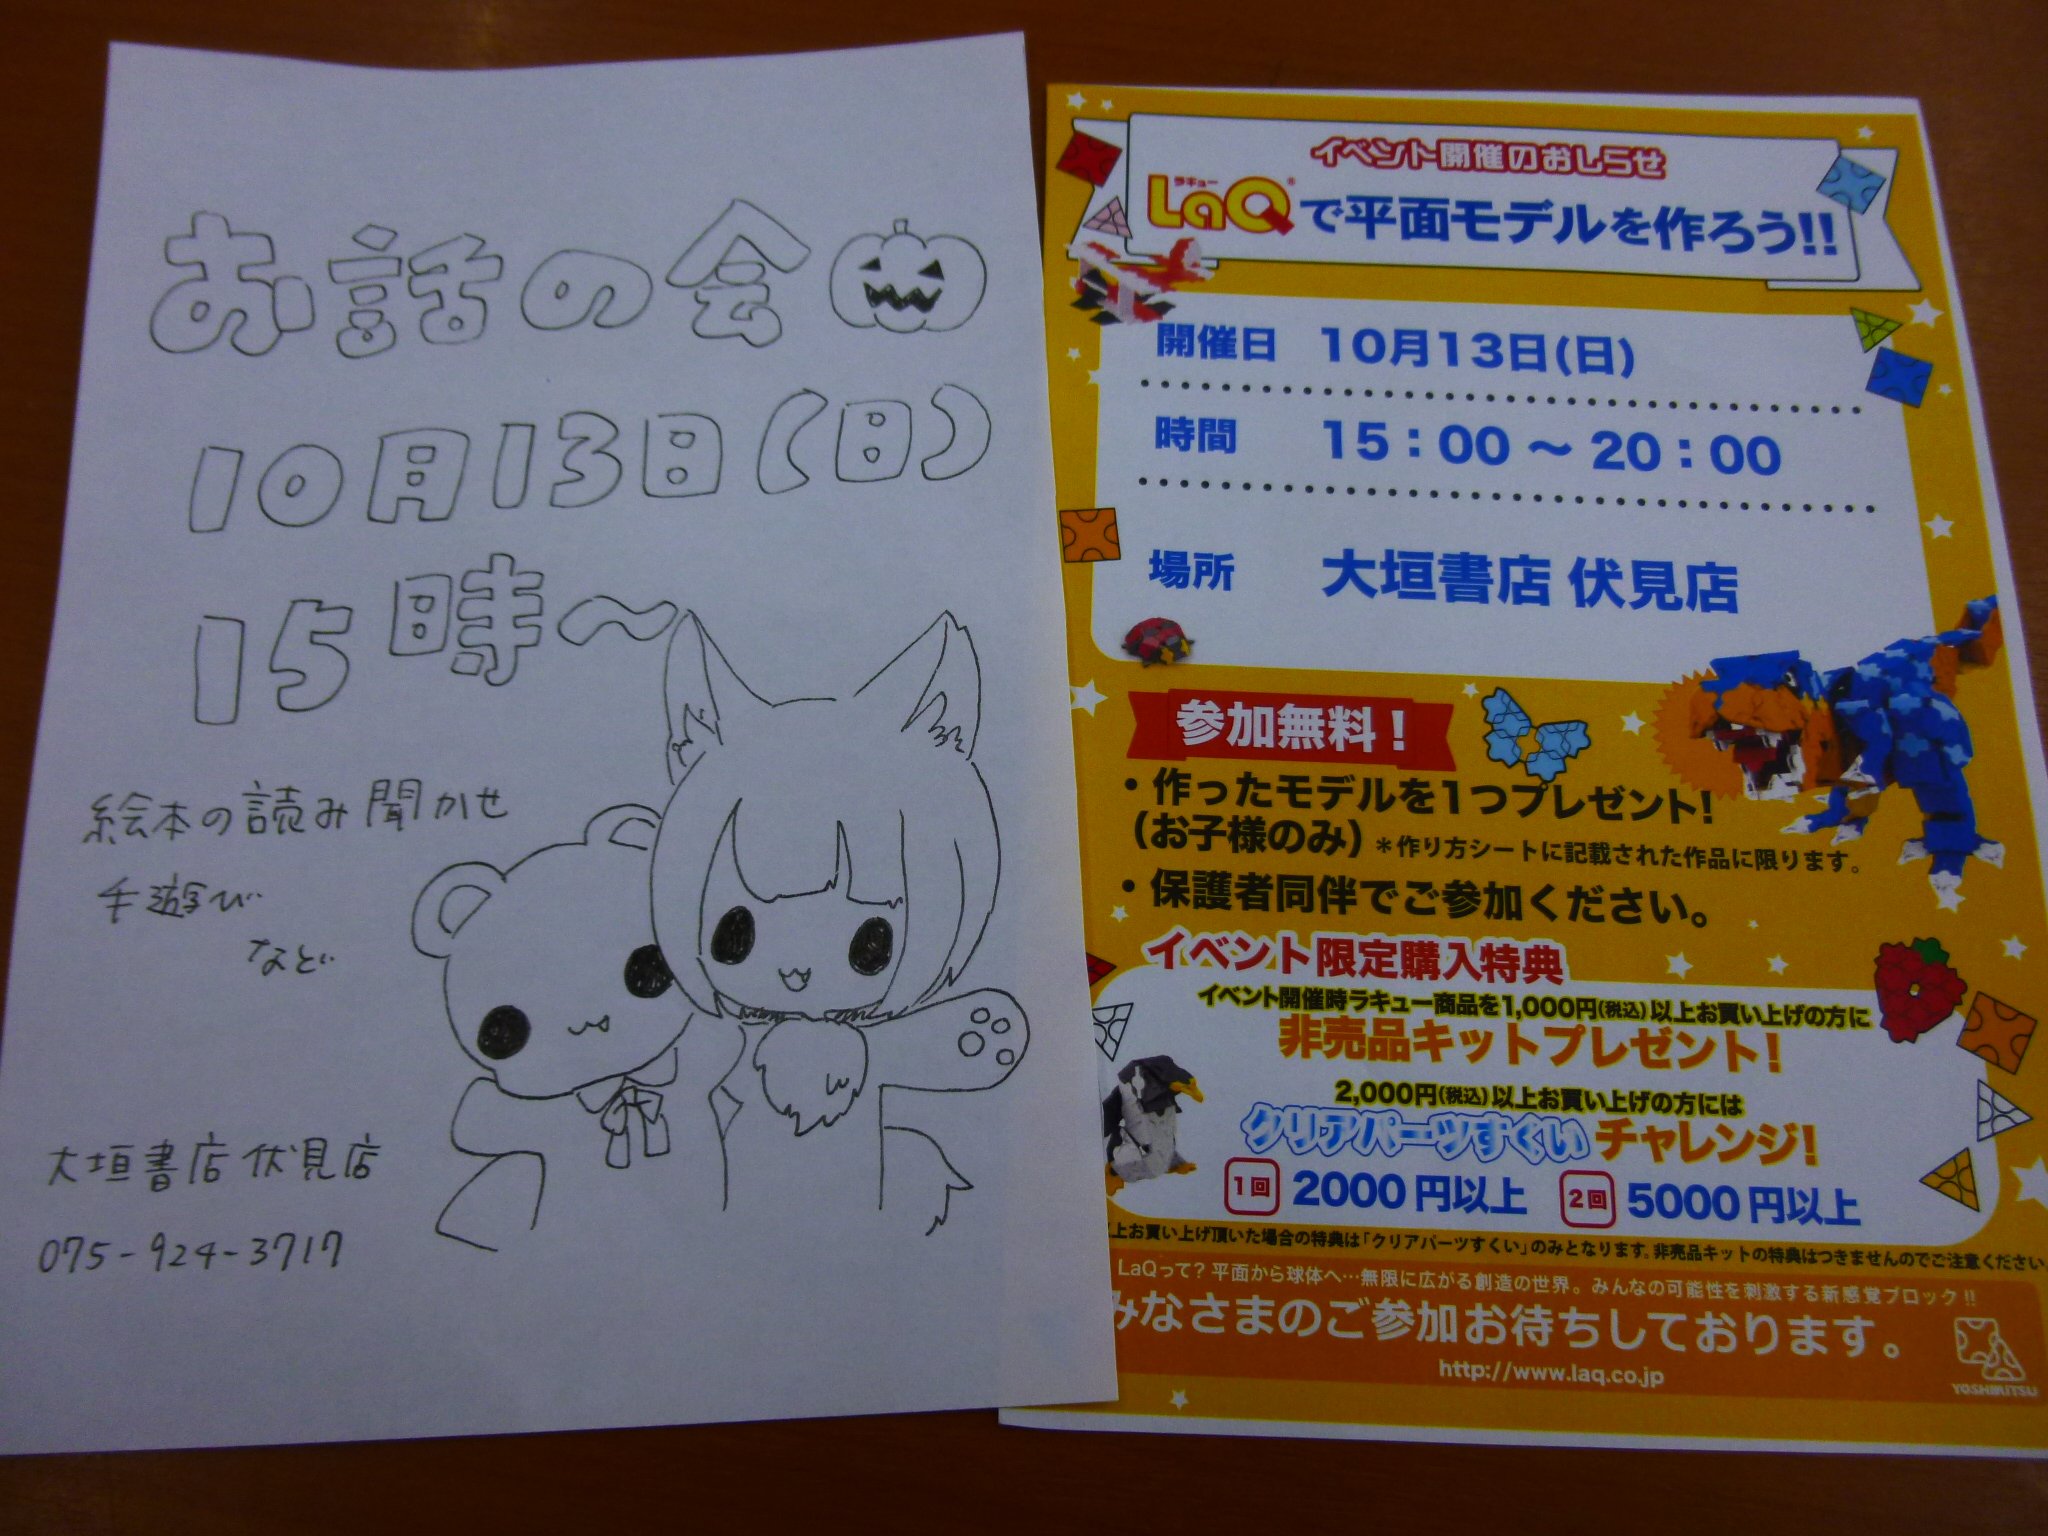 お話の会
10月13日(日)
15時～
絵本の読み聞かせ
手遊び
など
大垣書店 伏見店
075-924-3717
イベント開催のおしらせ
ラキュー
LaQ®で平面モデルを作ろう!!
開催日 10月13日(日)
時間 15：00 ～ 20：00
場所 大垣書店 伏見店
参加無料！
・作ったモデルを1つプレゼント!
(お子様のみ) ＊作り方シートに記載された作品に限ります。
・保護者同伴でご参加ください。
イベント限定購入特典
イベント開催時ラキュー商品を1,000円(税込)以上お買い上げの方に
非売品キットプレゼント!
2,000円(税込)以上お買い上げの方には
クリアパーツすくいチャレンジ!
1回 2000円以上 2回 5000円以上
上お買い上げ頂いた場合の特典は「クリアパーツすくい」のみとなります。非売品キットの特典はつきませんのでご注意ください
LaQって? 平面から球体へ…無限に広がる創造の世界。みんなの可能性を刺激する新感覚ブロック!!
みなさまのご参加お待ちしております。
http://www.laq.co.jp
YOSHIRITSU